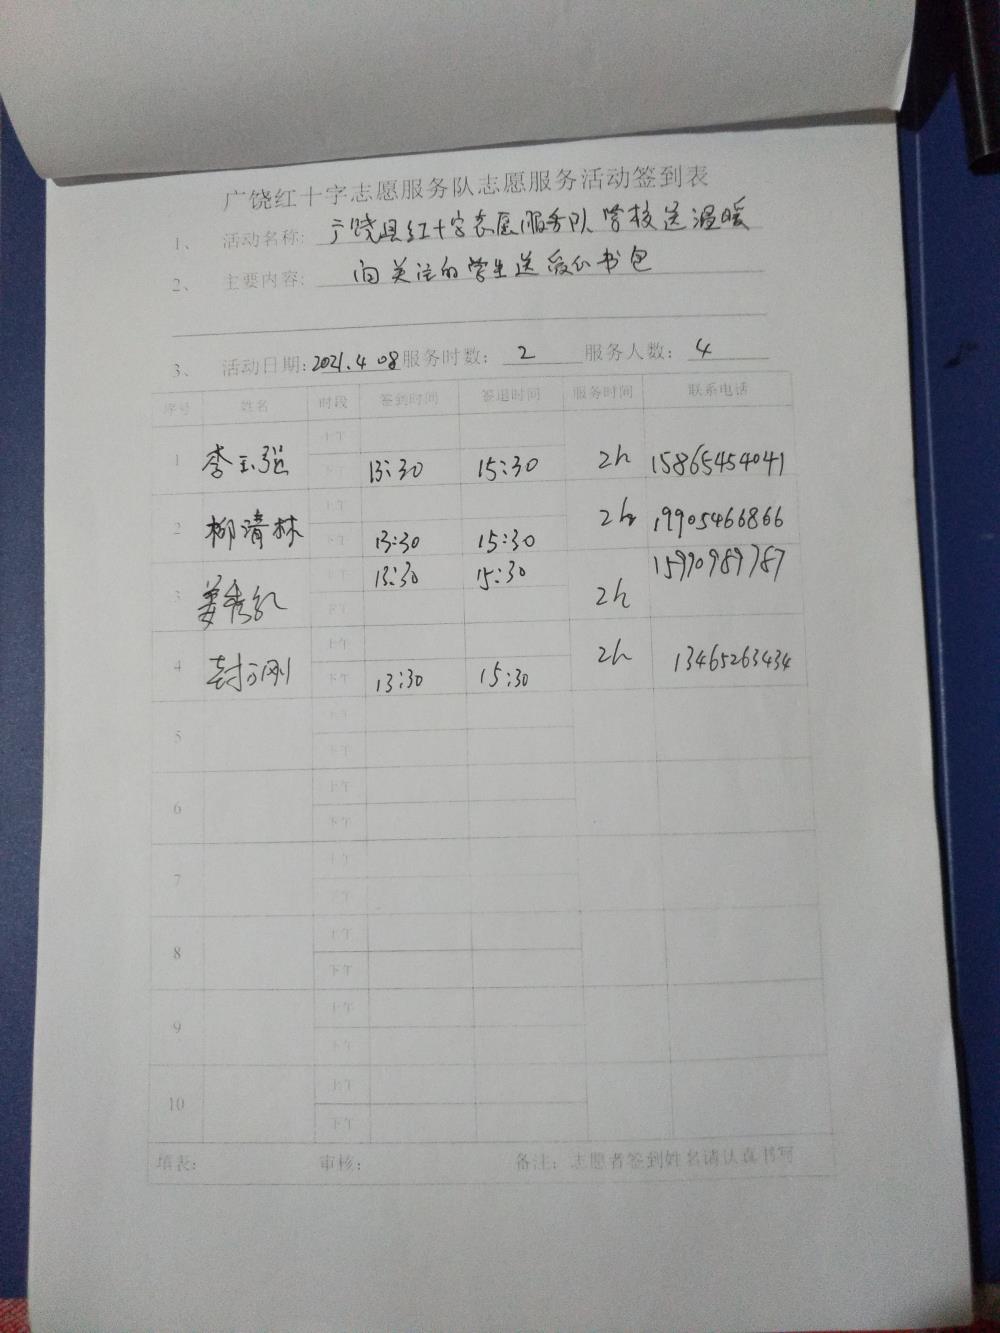 广饶红十字志愿服务队志愿服务活动签到表
1、 活动名称: 广饶县红十字志愿服务队 学校送温暖
2、 主要内容: 向关注的学生送爱心书包
3、 活动日期: 2021.4 08 服务时数: 2 服务人数: 4
序号 姓名 时段 签到时间 签退时间 服务时间 联系电话
上午
1 李玉强 下午 13:30 15:30 2h 15865454041
上午
2 柳清林 下午 13:30 15:30 2h 19905466866
上午 13:30 15:30 15990989787
3 姜秀红 下午 2h
上午
4 封刚 下午 13:30 15:30 2h 13465263434
上午
5
下午
上午
6
下午
上午
7
下午
上午
8
下午
上午
9
下午
上午
10
下午
填表: 审核: 备注: 志愿者签到姓名请认真书写